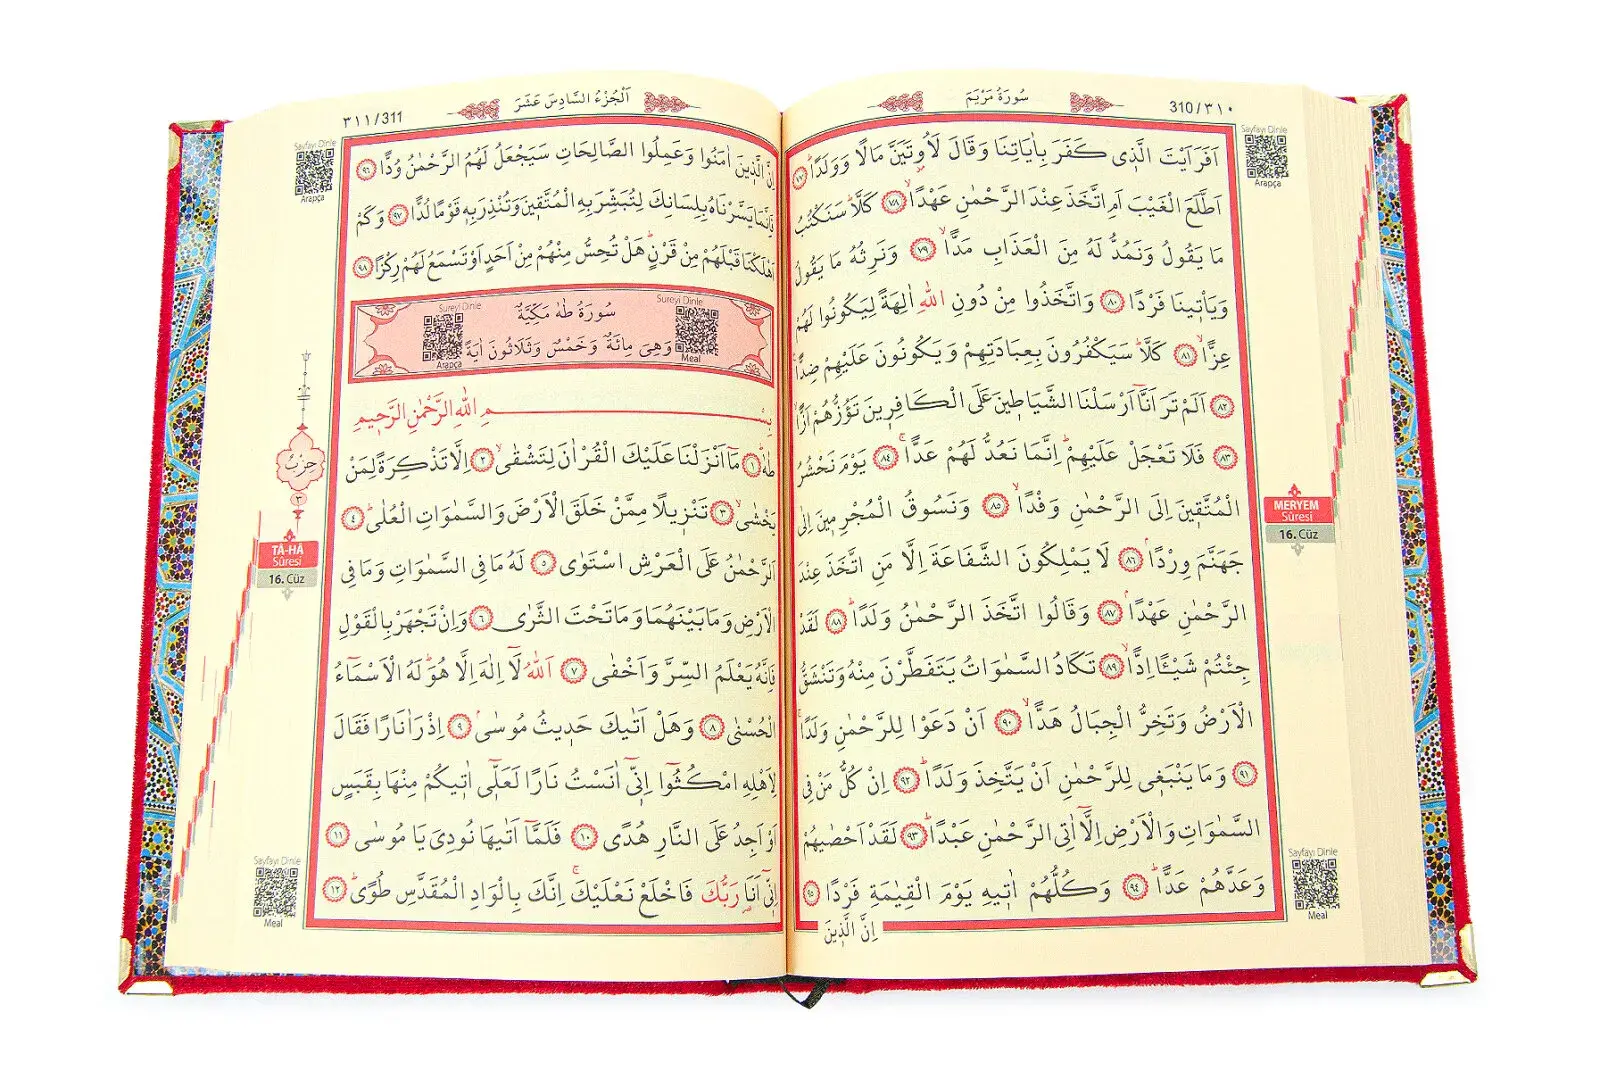 سُورَةُ مَرْيَمَ
310/٣١٠
Sayfayı Dinle
Arapça
اَفَرَاَيْتَ الَّذٖي كَفَرَ بِاٰيَاتِنَا وَقَالَ لَاُو۫تَيَنَّ مَالًا وَوَلَدًاؕ ﴿٧٧﴾
اَطَّلَعَ الْغَيْبَ اَمِ اتَّخَذَ عِنْدَ الرَّحْمٰنِ عَهْدًاۙ ﴿٧٨﴾ كَلَّاؕ سَنَكْتُبُ
مَا يَقُولُ وَنَمُدُّ لَهُ مِنَ الْعَذَابِ مَدًّاۙ ﴿٧٩﴾ وَنَرِثُهُ مَا يَقُولُ
وَيَاْتٖينَا فَرْدًا ﴿٨٠﴾ وَاتَّخَذُوا مِنْ دُونِ اللّٰهِ اٰلِهَةً لِيَكُونُوا لَهُمْ
عِزًّاۙ ﴿٨١﴾ كَلَّاؕ سَيَكْفُرُونَ بِعِبَادَتِهِمْ وَيَكُونُونَ عَلَيْهِمْ ضِدًّا
﴿٨٢﴾ اَلَمْ تَرَ اَنَّٓا اَرْسَلْنَا الشَّيَاطٖينَ عَلَى الْكَافِرٖينَ تَؤُزُّهُمْ اَزًّاۙ
﴿٨٣﴾ فَلَا تَعْجَلْ عَلَيْهِمْؕ اِنَّمَا نَعُدُّ لَهُمْ عَدًّاۚ ﴿٨٤﴾ يَوْمَ نَحْشُرُ
الْمُتَّقٖينَ اِلَى الرَّحْمٰنِ وَفْدًاۙ ﴿٨٥﴾ وَنَسُوقُ الْمُجْرِمٖينَ اِلٰى
جَهَنَّمَ وِرْدًاۘ ﴿٨٦﴾ لَا يَمْلِكُونَ الشَّفَاعَةَ اِلَّا مَنِ اتَّخَذَ عِنْدَ
الرَّحْمٰنِ عَهْدًاۘ ﴿٨٧﴾ وَقَالُوا اتَّخَذَ الرَّحْمٰنُ وَلَدًاؕ ﴿٨٨﴾ لَقَدْ
جِئْتُمْ شَيْـًٔا اِدًّاۙ ﴿٨٩﴾ تَكَادُ السَّمٰوَاتُ يَتَفَطَّرْنَ مِنْهُ وَتَنْشَقُّ
الْاَرْضُ وَتَخِرُّ الْجِبَالُ هَدًّاۙ ﴿٩٠﴾ اَنْ دَعَوْا لِلرَّحْمٰنِ وَلَدًاۚ
﴿٩١﴾ وَمَا يَنْبَغٖي لِلرَّحْمٰنِ اَنْ يَتَّخِذَ وَلَدًاؕ ﴿٩٢﴾ اِنْ كُلُّ مَنْ فِي
السَّمٰوَاتِ وَالْاَرْضِ اِلَّٓا اٰتِي الرَّحْمٰنِ عَبْدًاؕ ﴿٩٣﴾ لَقَدْ اَحْصٰيهُمْ
وَعَدَّهُمْ عَدًّاؕ ﴿٩٤﴾ وَكُلُّهُمْ اٰتٖيهِ يَوْمَ الْقِيٰمَةِ فَرْدًا ﴿٩٥﴾
اِنَّ الَّذٖينَ
MERYEM
Sûresi
16. Cüz
Sayfayı Dinle
Meal
اَلْجُزْءُ السَّادِسَ عَشَرَ
٣١١/311
Sayfayı Dinle
Arapça
اِنَّ الَّذٖينَ اٰمَنُوا وَعَمِلُوا الصَّالِحَاتِ سَيَجْعَلُ لَهُمُ الرَّحْمٰنُ وُدًّا ﴿٩٦﴾
فَاِنَّمَا يَسَّرْنَاهُ بِلِسَانِكَ لِتُبَشِّرَ بِهِ الْمُتَّقٖينَ وَتُنْذِرَ بِهٖ قَوْمًا لُدًّا ﴿٩٧﴾ وَكَمْ
اَهْلَكْنَا قَبْلَهُمْ مِنْ قَرْنٍؕ هَلْ تُحِسُّ مِنْهُمْ مِنْ اَحَدٍ اَوْ تَسْمَعُ لَهُمْ رِكْزًا ﴿٩٨﴾
Sureyi Dinle
Meal
سُورَةُ طٰهٰ مَكِّيَّةٌ
وَهِيَ مِائَةٌ وَخَمْسٌ وَثَلَاثُونَ اٰيَةً
Sureyi Dinle
Arapça
بِسْمِ اللّٰهِ الرَّحْمٰنِ الرَّحٖيمِ
طٰهٰؕ ﴿١﴾ مَٓا اَنْزَلْنَا عَلَيْكَ الْقُرْاٰنَ لِتَشْقٰىۙ ﴿٢﴾ اِلَّا تَذْكِرَةً لِمَنْ
يَخْشٰىۙ ﴿٣﴾ تَنْزٖيلًا مِمَّنْ خَلَقَ الْاَرْضَ وَالسَّمٰوَاتِ الْعُلٰىؕ ﴿٤﴾
اَلرَّحْمٰنُ عَلَى الْعَرْشِ اسْتَوٰى ﴿٥﴾ لَهُ مَا فِي السَّمٰوَاتِ وَمَا فِي
الْاَرْضِ وَمَا بَيْنَهُمَا وَمَا تَحْتَ الثَّرٰى ﴿٦﴾ وَاِنْ تَجْهَرْ بِالْقَوْلِ
فَاِنَّهُ يَعْلَمُ السِّرَّ وَاَخْفٰى ﴿٧﴾ اَللّٰهُ لَٓا اِلٰهَ اِلَّا هُوَؕ لَهُ الْاَسْمَٓاءُ
الْحُسْنٰى ﴿٨﴾ وَهَلْ اَتٰيكَ حَدٖيثُ مُوسٰىۘ ﴿٩﴾ اِذْ رَاٰ نَارًا فَقَالَ
لِاَهْلِهِ امْكُثُٓوا اِنّٖٓي اٰنَسْتُ نَارًا لَعَلّٖٓي اٰتٖيكُمْ مِنْهَا بِقَبَسٍ
اَوْ اَجِدُ عَلَى النَّارِ هُدًى ﴿١٠﴾ فَلَمَّٓا اَتٰيهَا نُودِيَ يَا مُوسٰى ﴿١١﴾
اِنّٖٓي اَنَا۬ رَبُّكَ فَاخْلَعْ نَعْلَيْكَۚ اِنَّكَ بِالْوَادِ الْمُقَدَّسِ طُوًىؕ ﴿١٢﴾
حِزْبْ
٣
TÂ-HÂ
Sûresi
16. Cüz
Sayfayı Dinle
Meal